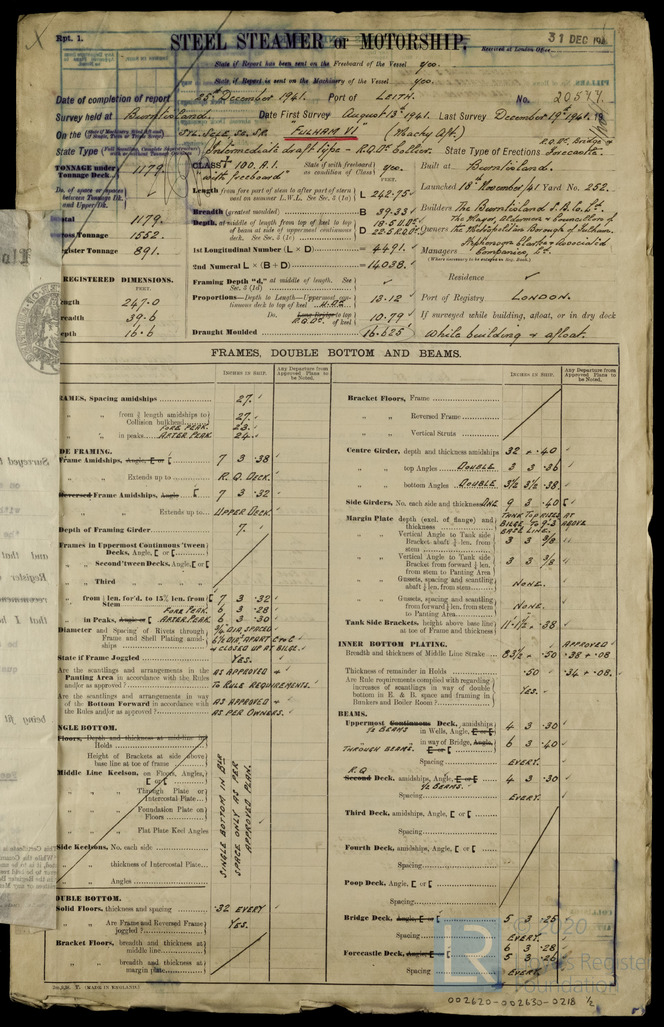 Rpt. 1.
31 DEC 194
STEEL STEAMER or MOTORSHIP.
Received at London Office
State if Report has been sent on the Freeboard of the Vessel yes.
State if Report is sent on the Machinery of the Vessel yes.
Date of completion of report 25th December 1941. Port of LEITH. No. 20577.
Survey held at Burntisland. Date First Survey August 13th 1941. Last Survey December 19th 1941. 19
On the "FULHAM VI" (Machy Aft.)
State Type Intermediate draft type - R.Q.Dk. Collier. State Type of Erections R.Q.Dk, Bridge & Forecastle.
TONNAGE under Tonnage Deck 1179.
CLASS + 100. A.1. "with freeboard"
State if with freeboard as condition of Class yes.
Built at Burntisland.
Do. of space or spaces between Tonnage Dk. and Upper Dk.
Length from fore part of stem to after part of stern post on summer L.W.L. See Sec. 3 (1a) L 242.75
Launched 18th November/41 Yard No. 252.
Total 1179.
Breadth (greatest moulded) B 39.33
Builders The Burntisland S.B. Co. Ld.
Gross Tonnage 1552.
Depth, at middle of length from top of keel to top of beam at side of uppermost continuous deck. See Sec. 3 (1c) D
Owners The Mayor, Aldermen & Councillors of the Metropolitan Borough of Fulham.
Register Tonnage 891.
1st Longitudinal Number (L × D) = 4491.
Managers Stephenson Clarke & Associated Companies, Ld.
2nd Numeral L × (B + D) = 14038.
REGISTERED DIMENSIONS.
FEET.
Framing Depth "d," at middle of length. See Sec. 3 (1d)
Residence
Length 247.0
Proportions—Depth to Length—Uppermost continuous deck to top of keel 13.12
Port of Registry LONDON.
Breadth 39.6
Do. Long Bridge to top of keel R.Q.Dk. 10.79
If surveyed while building, afloat, or in dry dock
Depth 16.6
Draught Moulded 16.625
While building & afloat.
FRAMES, DOUBLE BOTTOM AND BEAMS.
INCHES IN SHIP.
Any Departure from Approved Plans to be Noted.
INCHES IN SHIP.
Any Departure from Approved Plans to be Noted.
FRAMES, Spacing amidships 27.
" " from 3/5 length amidships to Collision bulkhead 27.
FORE PEAK. 23.
" " in peaks. AFTER PEAK 24.
SIDE FRAMING.
Frame Amidships, Angle, E or [ 7 3 .38
" " Extends up to R.Q. DECK.
Reversed Frame Amidships, Angle 7 3 .32
" " Extends up to UPPER DECK.
Depth of Framing Girder 7.
Frames in Uppermost Continuous 'tween Decks, Angle, E or [
" " Second 'tween Decks, Angle, E or [
" " Third "
" " from 1/5 len. for'd. to 15% len. from Stem 7 3 .32
FORE PEAK. 6 3 .28
" " in Peaks, Angle or [ AFTER PEAK 6 3 .30
Diameter and Spacing of Rivets through Frame and Shell Plating amidships 3/4" DIA SPACED
6 1/2 DIA. APART C to C
& CLOSED UP AT BILGE.
State if Frame Joggled YES.
Are the scantlings and arrangements in the Panting Area in accordance with the Rules and/or as approved? AS APPROVED & TO RULE REQUIREMENTS.
Are the scantlings and arrangements in way of the Bottom Forward in accordance with the Rules and/or as approved? AS APPROVED & AS PER OWNERS.
SINGLE BOTTOM.
Floors, Depth and thickness at middle line in Holds
Height of Brackets at side above base line at toe of frame
Middle Line Keelson, on Floors, Angles, E or [
" " Through Plate or Intercostal Plate
" " Foundation Plate on Floors
" " Flat Plate Keel Angles
Side Keelsons, No. each side
" " thickness of Intercostal Plate
" " Angles
SINGLE BOTTOM IN BLR SPACE ONLY AS PER APPROVED PLAN.
DOUBLE BOTTOM.
Solid Floors, thickness and spacing .32 EVERY
" " Are Frame and Reversed Frame joggled? YES.
Bracket Floors, breadth and thickness at middle line
" " breadth and thickness at margin plate
Bracket Floors, Frame
" " Reversed Frame
" " Vertical Struts
Centre Girder, depth and thickness amidships 32 × .40
" " top Angles DOUBLE 3 3 .36
" " bottom Angles DOUBLE 3 1/2 3 1/2 .38
Side Girders, No. each side and thickness ONE 9 3 .40 [
Margin Plate depth (excl. of flange) and thickness TANK TOP RISED AT BILGE TO 9-3 ABOVE BASE LINE.
" " Vertical Angle to Tank side Bracket abaft 1/4 len. from stem 3 3 3/8
" " Vertical Angle to Tank side Bracket from forward 1/4 len. from stem to Panting Area 3 3 3/8
" " Gussets, spacing and scantling abaft 1/4 len. from stem NONE.
" " Gussets, spacing and scantling from forward 1/4 len. from stem to Panting Area NONE.
Tank Side Brackets, height above base line at toe of Frame and thickness 11-1 1/2 × .38
INNER BOTTOM PLATING.
APPROVED
Breadth and thickness of Middle Line Strake 83 1/2 × .50 .38 + .08
Thickness of remainder in Holds .50 .34 + .08.
Are Rule requirements complied with regarding increases of scantlings in way of double bottom in E. & B. space and framing in Bunkers and Boiler Room? YES.
BEAMS.
Uppermost Continuous Deck, amidships in Wells, Angle, E or [ 1/2 BEAMS 4 3 .30
" " in way of Bridge, Angle, E or [ THROUGH BEAMS. 6 3 .40
Spacing EVERY.
R.Q. Second Deck, amidships, Angle, E or [ 1/2 BEAMS. 4 3 .30
Spacing EVERY.
Third Deck, amidships, Angle, E or [
Spacing
Fourth Deck, amidships, Angle, E or [
Spacing
Poop Deck, Angle, E or [
Spacing
Bridge Deck, Angle, E or [ 5 3 .25
Spacing EVERY.
Forecastle Deck, Angle, E or [ 6 3 .28
5 3 .26
Spacing EVERY.
(MADE IN ENGLAND)
LR
2020
Lloyd's Register Foundation
002620-002630-0218 1/2